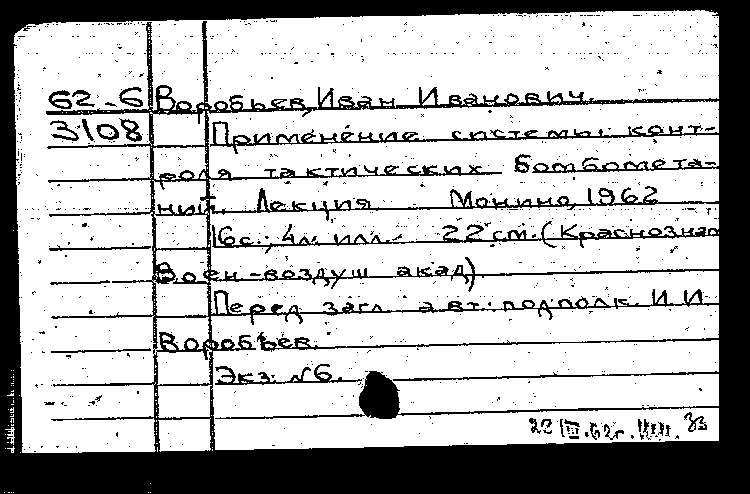 62-6 Воробьев, Иван Иванович.
3108 Применение системы конт-
роля тактических бомбомета-
ний. Лекция Монино, 1962
16с.; 4л. илл. 22 см. (Краснознам
Воен-воздуш акад)
Перед загл. авт: подполк. И И
Воробьев.
Экз. №6.